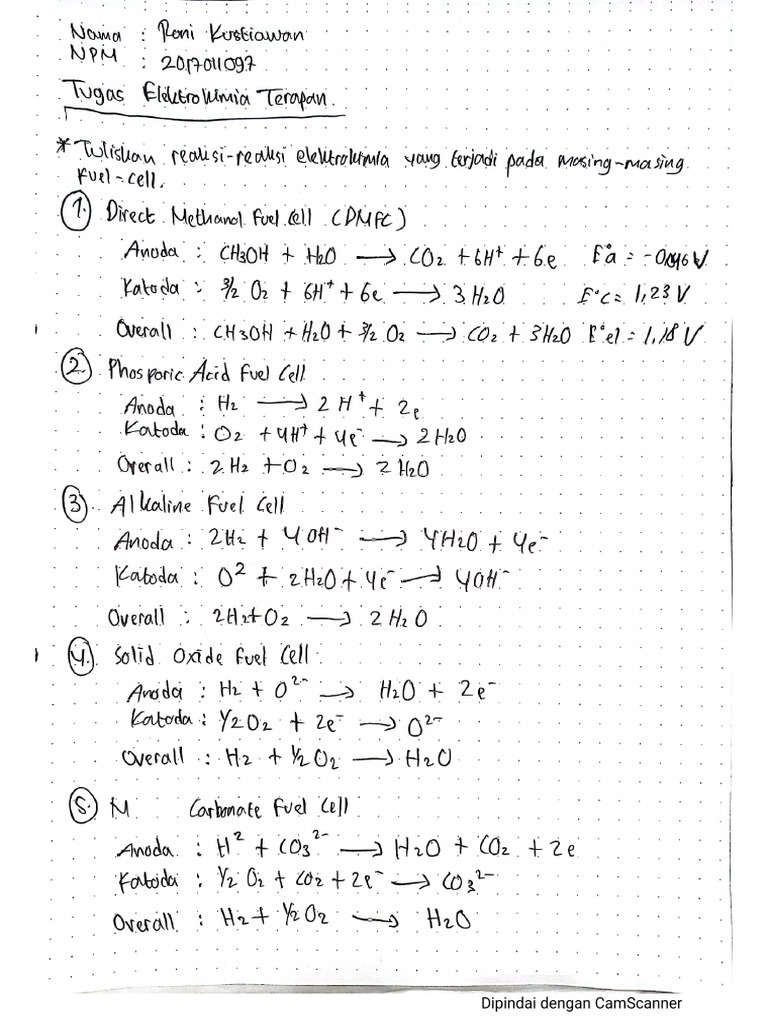 Nama : Roni Kustiawan
NPM : 2017011097
Tugas Elektrokimia Terapan.
* Tuliskan reaksi-reaksi elektrokimia yang terjadi pada masing-masing
fuel-cell.
1. Direct Methanol Fuel Cell (DMFC)
Anoda : CH3OH + H2O → CO2 + 6H+ + 6e E°a = -0,046 V
Katoda : 3/2 O2 + 6H+ + 6e → 3 H2O E°c = 1,23 V
Overall : CH3OH + H2O + 3/2 O2 → CO2 + 3H2O E°el = 1,18 V
2. Phosporic Acid Fuel Cell
Anoda : H2 → 2 H+ + 2e
Katoda : O2 + 4H+ + 4e- → 2H2O
Overall : 2 H2 + O2 → 2 H2O
3. Alkaline Fuel Cell
Anoda : 2H2 + 4OH- → 4H2O + 4e-
Katoda : O² + 2H2O + 4e- → 4OH-
Overall : 2H2 + O2 → 2 H2O
4. Solid Oxide Fuel Cell
Anoda : H2 + O2- → H2O + 2e-
Katoda : 1/2 O2 + 2e- → O2-
Overall : H2 + 1/2 O2 → H2O
5. M Carbonate Fuel Cell
Anoda : H² + CO3 2- → H2O + CO2 + 2e
Katoda : 1/2 O2 + CO2 + 2e- → CO3 2-
Overall : H2 + 1/2 O2 → H2O
Dipindai dengan CamScanner